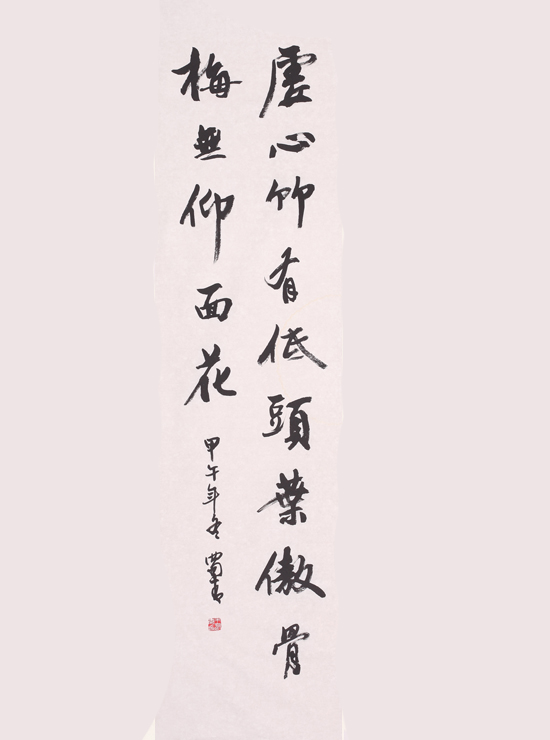 虚心竹有低頭葉傲骨
梅無仰面花
甲午年冬